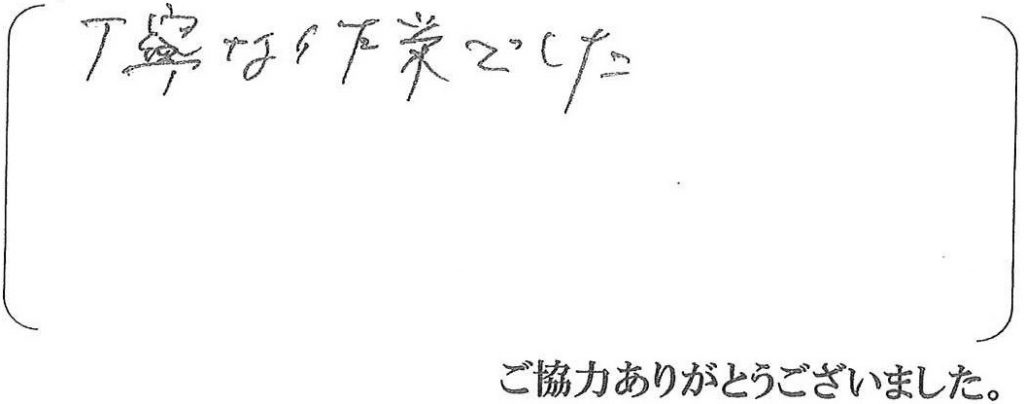 丁寧な作業でした
ご協力ありがとうございました。